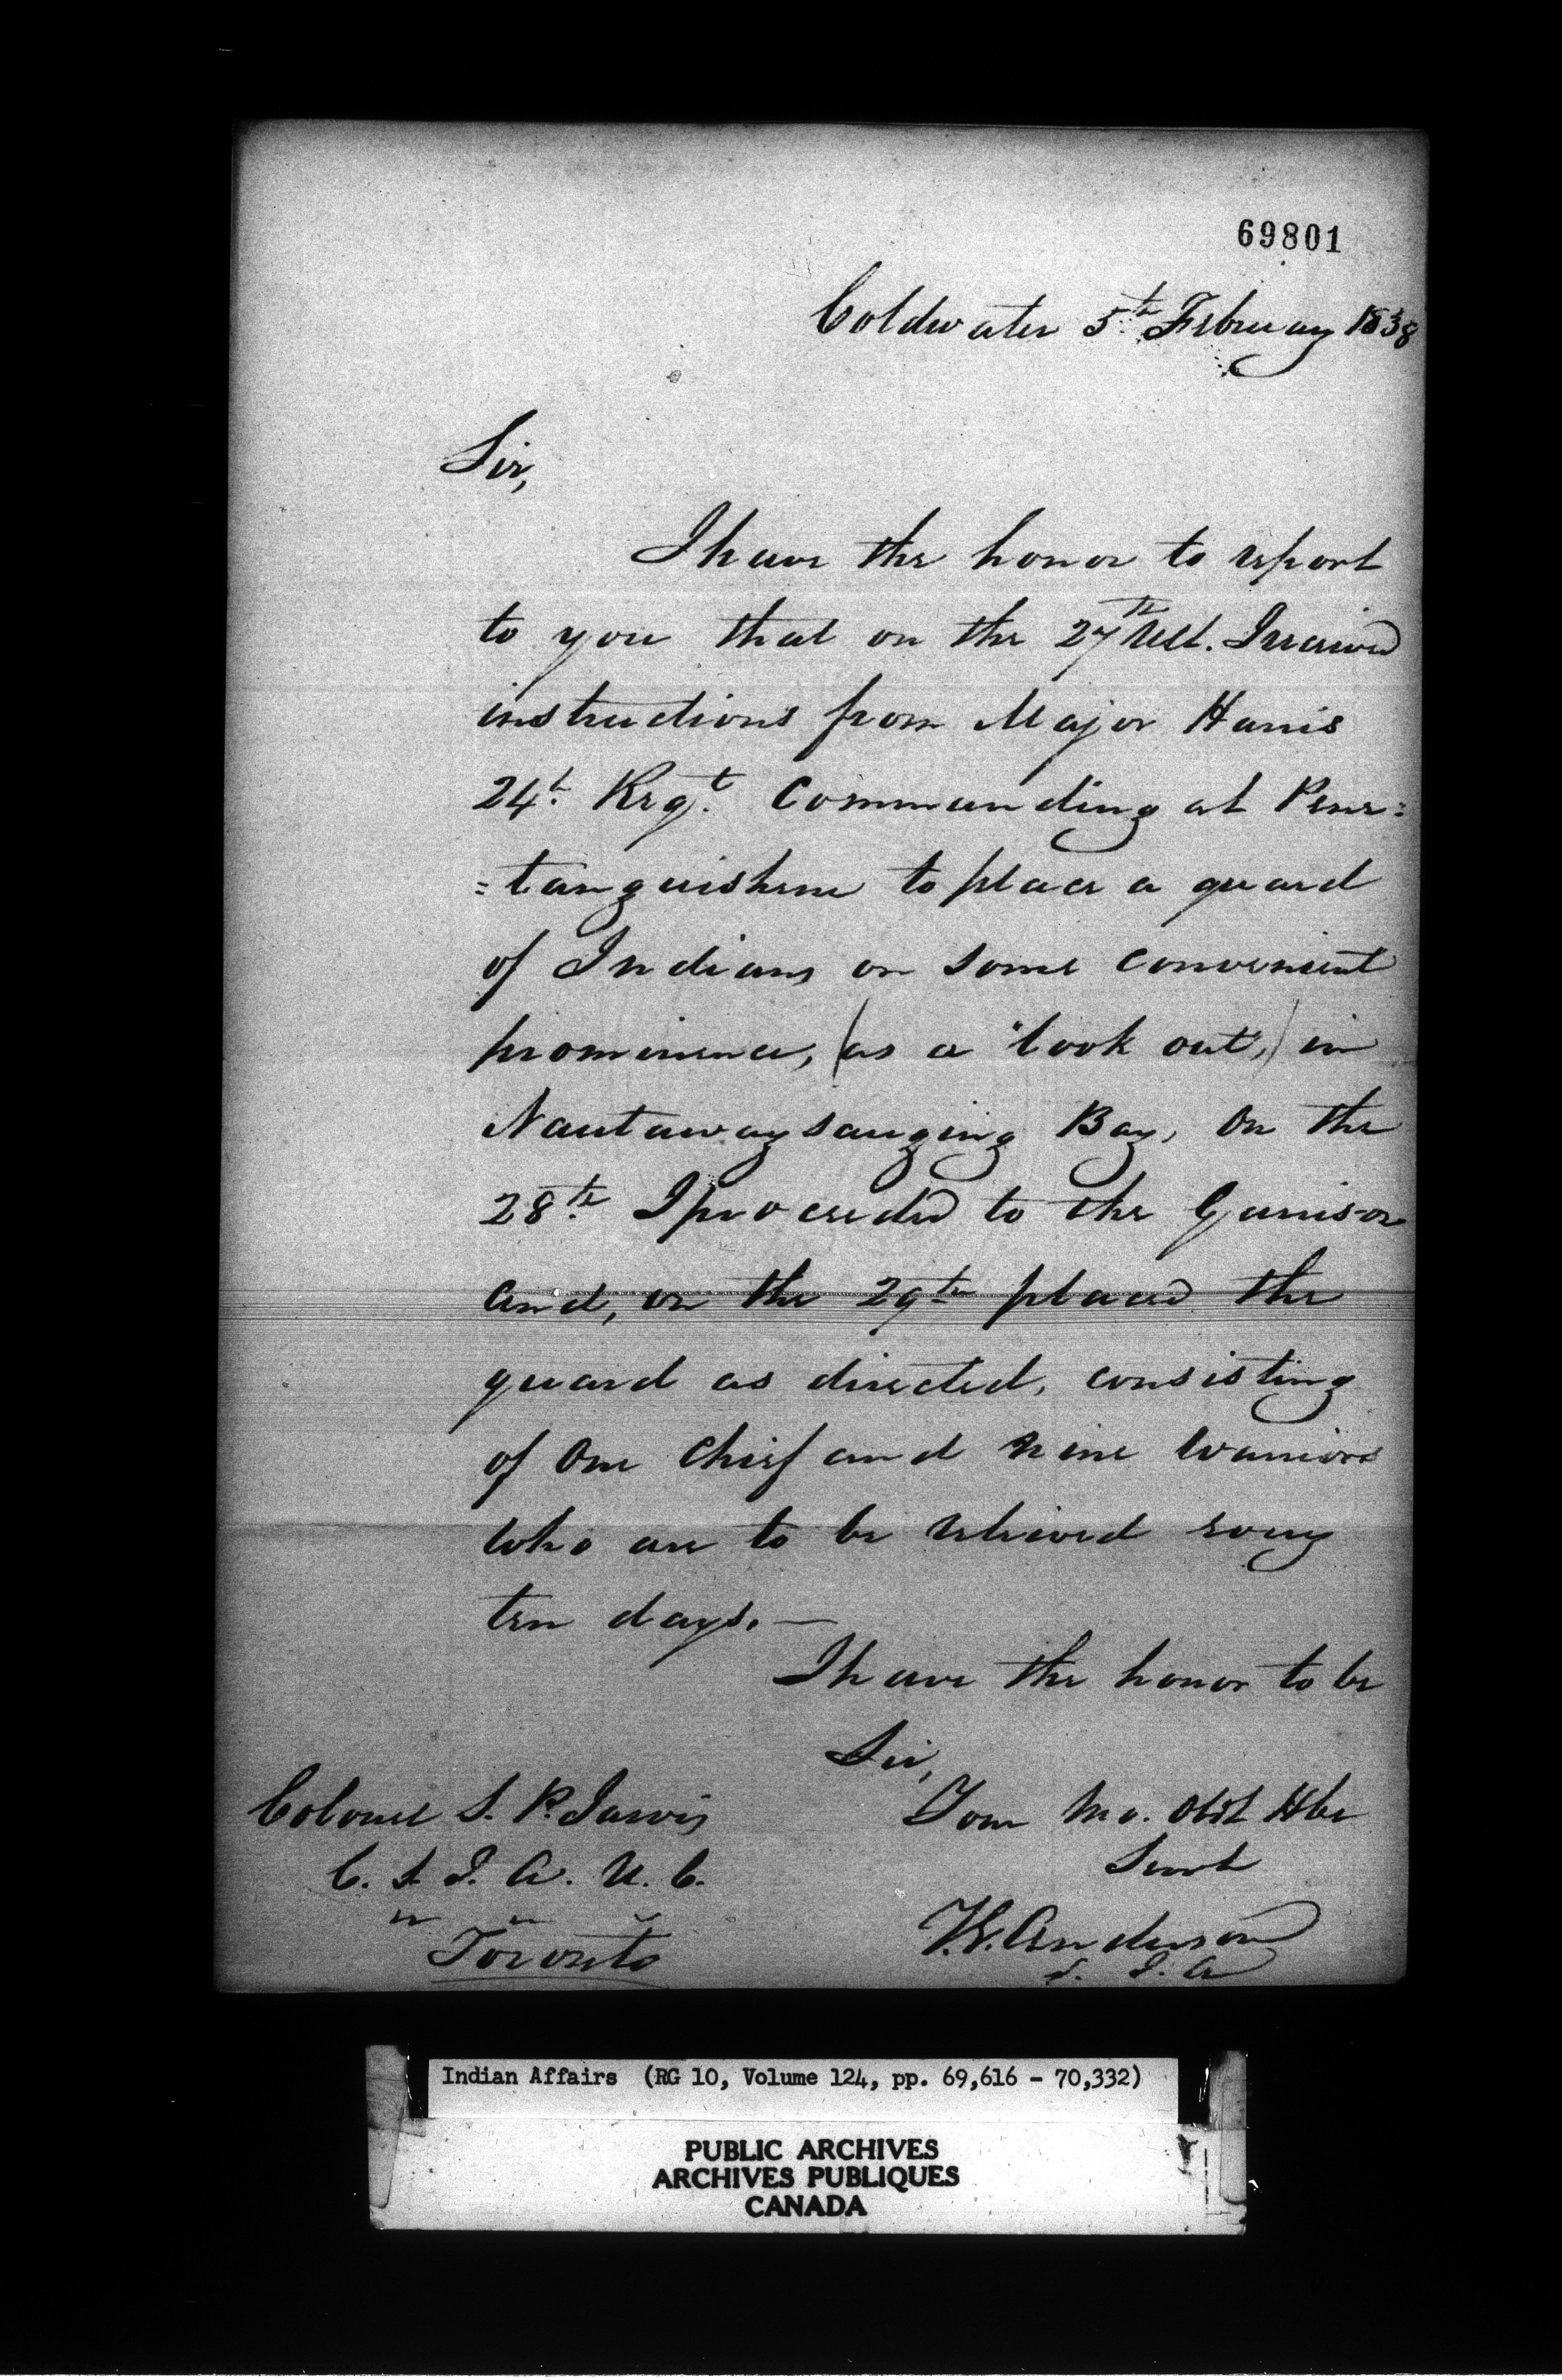 69801
Coldwater 5th February 1838
Sir,
I have the honor to report
to you that on the 27th Ult. I received
instructions from Major Harris
24th Regt. Commanding at Pene=
=tanguishene to place a guard
of Indians on some convenient
prominence, (as a "look out",) in
Nautawaysauging Bay, On the
28th I proceeded to the Garrison
and, on the 29th placed the
guard as directed, consisting
of One Chief and nine Warriors
who are to be relieved every
ten days. —
I have the honor to be
Sir,
Your Mo. Obdt Hble
Servt
T.G. Anderson
S. I. A
Colonel S. P. Jarvis
C. S. I. A. U. C.
" " "
Toronto
Indian Affairs (RG 10, Volume 124, pp. 69,616 - 70,332)
PUBLIC ARCHIVES
ARCHIVES PUBLIQUES
CANADA